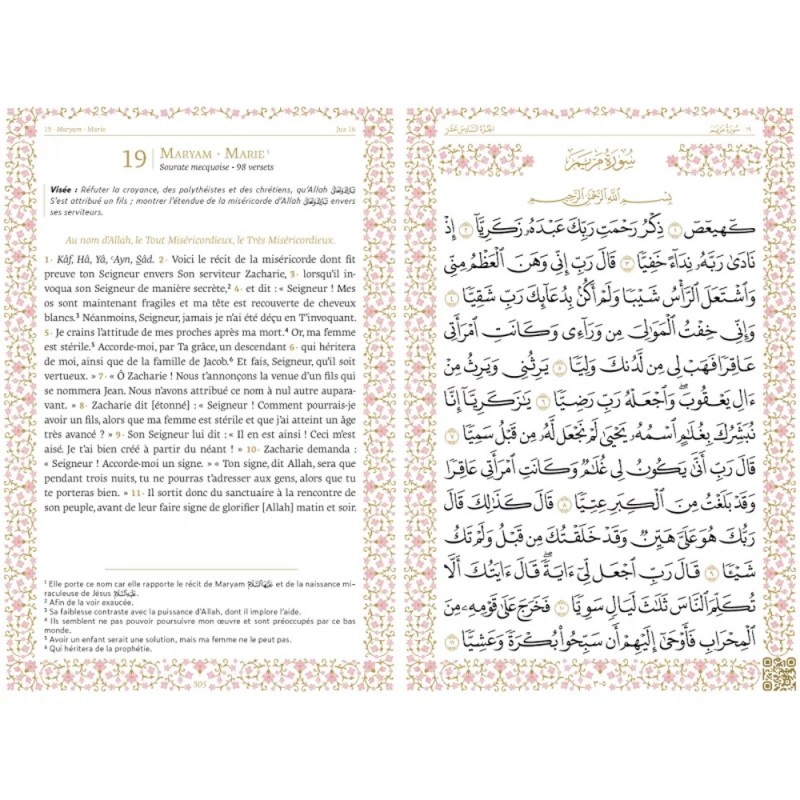 19 · Maryam · Marie
Juz 16
19 | MARYAM · MARIE¹
Sourate mecquoise • 98 versets
Visée : Réfuter la croyance, des polythéistes et des chrétiens, qu'Allah
S'est attribué un fils ; montrer l'étendue de la miséricorde d'Allah envers
ses serviteurs.
Au nom d'Allah, le Tout Miséricordieux, le Très Miséricordieux.
1· Kâf, Hâ, Yâ, ʿAyn, Sâd. 2· Voici le récit de la miséricorde dont fit
preuve ton Seigneur envers Son serviteur Zacharie, 3· lorsqu'il in-
voqua son Seigneur de manière secrète,² 4· et dit : « Seigneur ! Mes
os sont maintenant fragiles et ma tête est recouverte de cheveux
blancs.³ Néanmoins, Seigneur, jamais je n'ai été déçu en T'invoquant.
5· Je crains l'attitude de mes proches après ma mort.⁴ Or, ma femme
est stérile.⁵ Accorde-moi, par Ta grâce, un descendant 6· qui héritera
de moi, ainsi que de la famille de Jacob.⁶ Et fais, Seigneur, qu'il soit
vertueux. » 7· « Ô Zacharie ! Nous t'annonçons la venue d'un fils qui
se nommera Jean. Nous n'avons attribué ce nom à nul autre aupara-
vant. » 8· Zacharie dit [étonné] : « Seigneur ! Comment pourrais-je
avoir un fils, alors que ma femme est stérile et que j'ai atteint un âge
très avancé ? » 9· Son Seigneur lui dit : « Il en est ainsi ! Ceci m'est
aisé. Je t'ai bien créé à partir du néant ! » 10· Zacharie demanda :
« Seigneur ! Accorde-moi un signe. » « Ton signe, dit Allah, sera que
pendant trois nuits, tu ne pourras t'adresser aux gens, alors que tu
te porteras bien. » 11· Il sortit donc du sanctuaire à la rencontre de
son peuple, avant de leur faire signe de glorifier [Allah] matin et soir.
¹ Elle porte ce nom car elle rapporte le récit de Maryam et de la naissance mi-
raculeuse de Jésus
² Afin de la voir exaucée.
³ Sa faiblesse contraste avec la puissance d'Allah, dont il implore l'aide.
⁴ Ils semblent ne pas pouvoir poursuivre mon œuvre et sont préoccupés par ce bas
monde.
⁵ Avoir un enfant serait une solution, mais ma femme ne le peut pas.
⁶ Qui héritera de la prophétie.
305
١٩ · سُورَةُ مَرْيَم
الجُزْءُ السَّادِسَ عَشَرَ
سُورَةُ مَرْيَمَ
بِسْمِ اللَّهِ الرَّحْمَٰنِ الرَّحِيمِ
كٓهيعٓصٓ ١ ذِكْرُ رَحْمَتِ رَبِّكَ عَبْدَهُۥ زَكَرِيَّآ ٢ إِذْ
نَادَىٰ رَبَّهُۥ نِدَآءً خَفِيًّا ٣ قَالَ رَبِّ إِنِّى وَهَنَ ٱلْعَظْمُ مِنِّى
وَٱشْتَعَلَ ٱلرَّأْسُ شَيْبًا وَلَمْ أَكُنۢ بِدُعَآئِكَ رَبِّ شَقِيًّا ٤
وَإِنِّى خِفْتُ ٱلْمَوَٰلِىَ مِن وَرَآءِى وَكَانَتِ ٱمْرَأَتِى
عَاقِرًا فَهَبْ لِى مِن لَّدُنكَ وَلِيًّا ٥ يَرِثُنِى وَيَرِثُ مِنْ
ءَالِ يَعْقُوبَ ۖ وَٱجْعَلْهُ رَبِّ رَضِيًّا ٦ يَٰزَكَرِيَّآ إِنَّا
نُبَشِّرُكَ بِغُلَٰمٍ ٱسْمُهُۥ يَحْيَىٰ لَمْ نَجْعَل لَّهُۥ مِن قَبْلُ سَمِيًّا ٧
قَالَ رَبِّ أَنَّىٰ يَكُونُ لِى غُلَٰمٌ وَكَانَتِ ٱمْرَأَتِى عَاقِرًا
وَقَدْ بَلَغْتُ مِنَ ٱلْكِبَرِ عِتِيًّا ٨ قَالَ كَذَٰلِكَ قَالَ
رَبُّكَ هُوَ عَلَىَّ هَيِّنٌ وَقَدْ خَلَقْتُكَ مِن قَبْلُ وَلَمْ تَكُ
شَيْـًٔا ٩ قَالَ رَبِّ ٱجْعَل لِّىٓ ءَايَةً ۚ قَالَ ءَايَتُكَ أَلَّا
تُكَلِّمَ ٱلنَّاسَ ثَلَٰثَ لَيَالٍ سَوِيًّا ١٠ فَخَرَجَ عَلَىٰ قَوْمِهِۦ مِنَ
ٱلْمِحْرَابِ فَأَوْحَىٰٓ إِلَيْهِمْ أَن سَبِّحُوا۟ بُكْرَةً وَعَشِيًّا ١١
٣٠٥